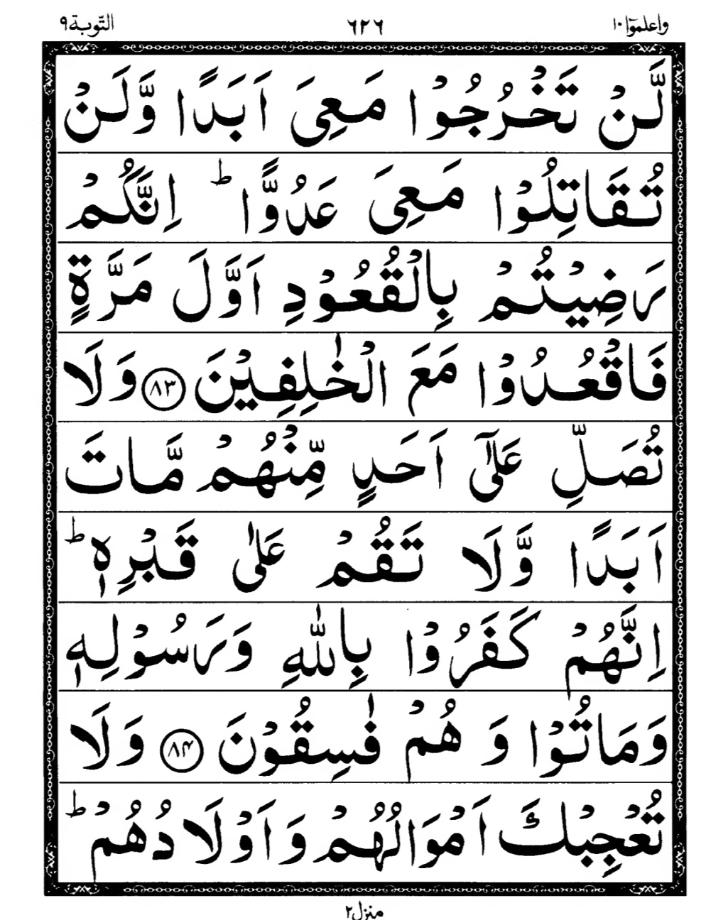 واعلموا١٠ ٦٢٦ التّوبة٩
لَّنْ تَخْرُجُوْا مَعِيَ اَبَدًا وَّلَنْ
تُقَاتِلُوْا مَعِيَ عَدُوًّا ؕ اِنَّكُمْ
رَضِيْتُمْ بِالْقُعُوْدِ اَوَّلَ مَرَّةٍ
فَاقْعُدُوْا مَعَ الْخٰلِفِيْنَ ۸۳ وَلَا
تُصَلِّ عَلٰٓى اَحَدٍ مِّنْهُمْ مَّاتَ
اَبَدًا وَّلَا تَقُمْ عَلٰى قَبْرِهٖ ؕ
اِنَّهُمْ كَفَرُوْا بِاللّٰهِ وَرَسُوْلِهٖ
وَمَاتُوْا وَ هُمْ فٰسِقُوْنَ ۸۴ وَلَا
تُعْجِبْكَ اَمْوَالُهُمْ وَاَوْلَادُهُمْ ؕ
منزل٢